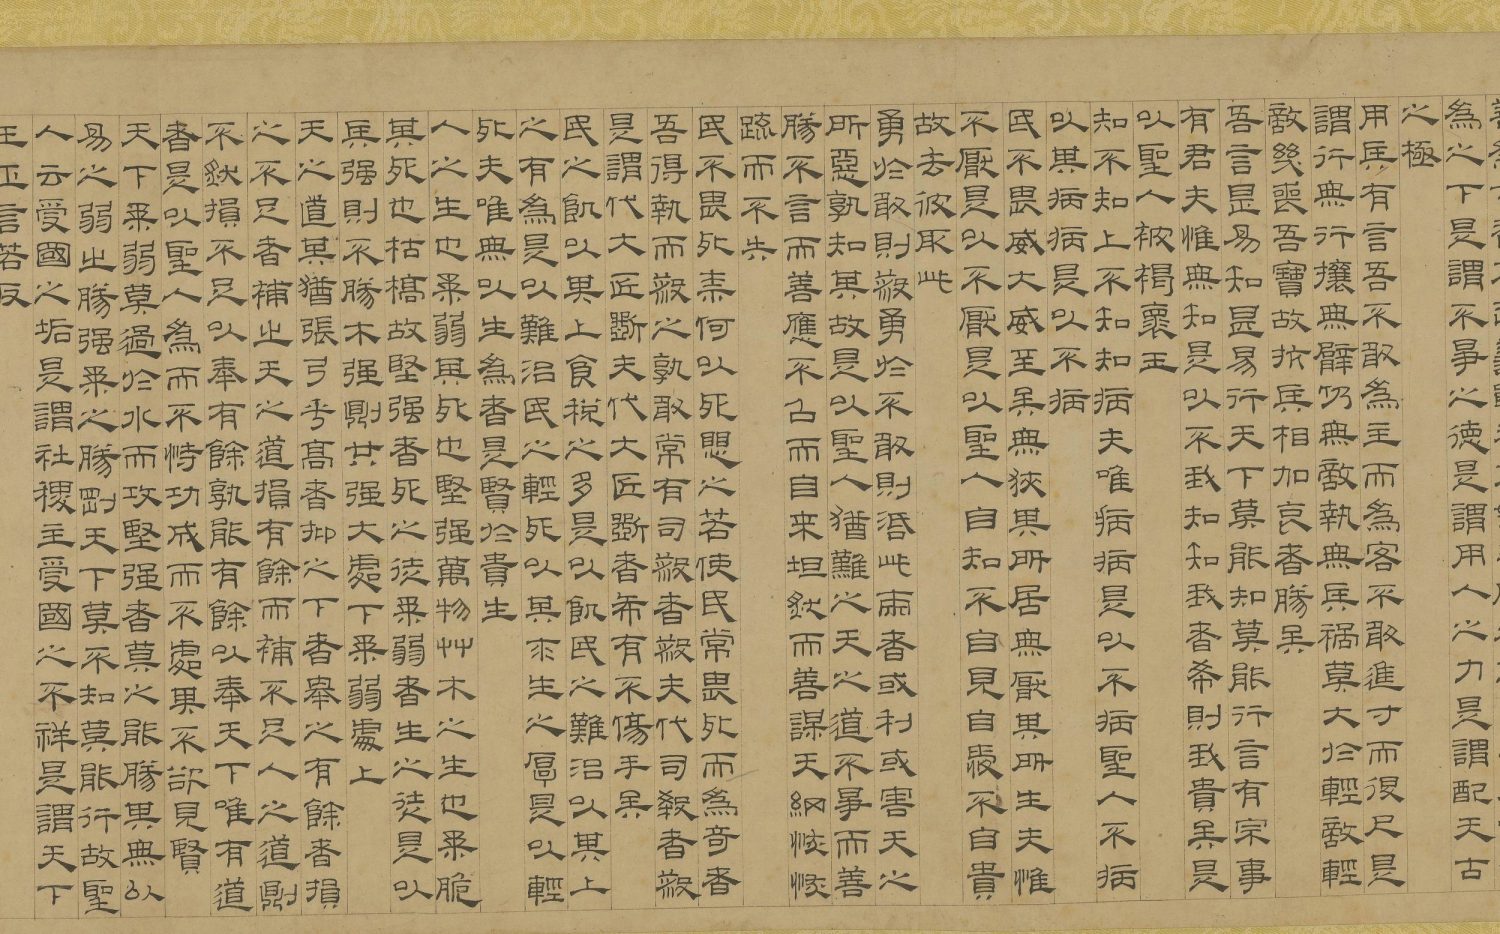 為之下是謂不爭之德是謂用人之力是謂配天古
之極
用兵有言吾不敢為主而為客不敢進寸而退尺是
謂行無行攘無臂仍無敵執無兵禍莫大於輕敵輕
敵幾喪吾寶故抗兵相加哀者勝矣
吾言甚易知甚易行天下莫能知莫能行言有宗事
有君夫惟無知是以不我知知我者希則我貴矣是
以聖人被褐懷玉
知不知上不知知病夫唯病病是以不病聖人不病
以其病病是以不病
民不畏威大威至矣無狹其所居無厭其所生夫惟
不厭是以不厭是以聖人自知不自見自愛不自貴
故去彼取此
勇於敢則殺勇於不敢則活此兩者或利或害天之
所惡孰知其故是以聖人猶難之天之道不爭而善
勝不言而善應不召而自来坦然而善謀天網恢恢
疏而不失
民不畏死柰何以死愳之若使民常畏死而為奇者
吾得執而殺之孰敢常有司殺者殺夫代司殺者殺
是謂代大匠斲夫代大匠斲者希有不傷手矣
民之飢以其上食稅之多是以飢民之難治以其上
之有為是以難治民之輕死以其求生之厚是以輕
死夫唯無以生為者是賢於貴生
人之生也柔弱其死也堅强萬物艸木之生也柔脆
其死也枯槁故堅强者死之徒柔弱者生之徒是以
兵强則不勝木强則共强大處下柔弱處上
天之道其猶張弓乎高者抑之下者舉之有餘者損
之不足者補之天之道損有餘而補不足人之道則
不然損不足以奉有餘孰能有餘以奉天下唯有道
者是以聖人為而不恃功成而不處其不欲見賢
天下柔弱莫過於水而攻堅强者莫之能勝其無以
易之弱之勝强柔之勝剛天下莫不知莫能行故聖
人云受國之垢是謂社稷主受國之不祥是謂天下
王正言若反